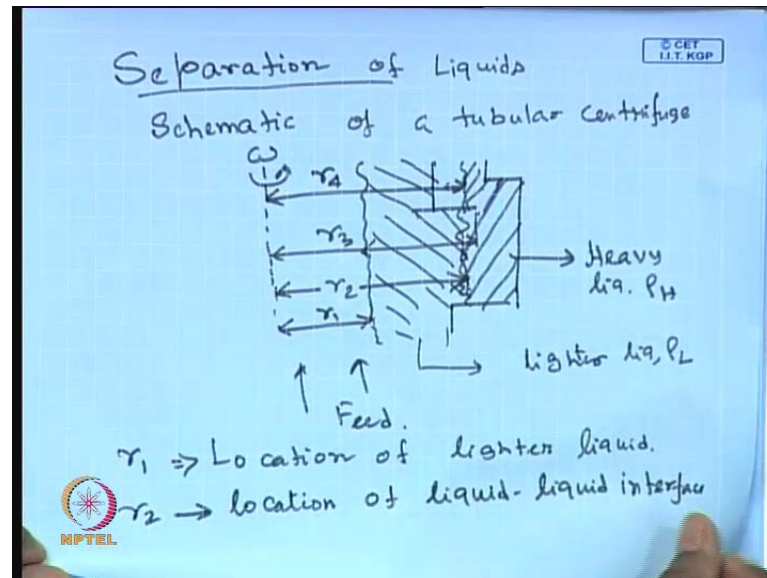 © CET
I.I.T. KGP
Separation of Liquids
Schematic of a tubular centrifuge
ω
r4
r3
r2
r1
Heavy
liq. ρH
lighter liq, ρL
Feed.
r1 ⇒ Location of lighter liquid.
r2 → location of liquid-liquid interface
NPTEL